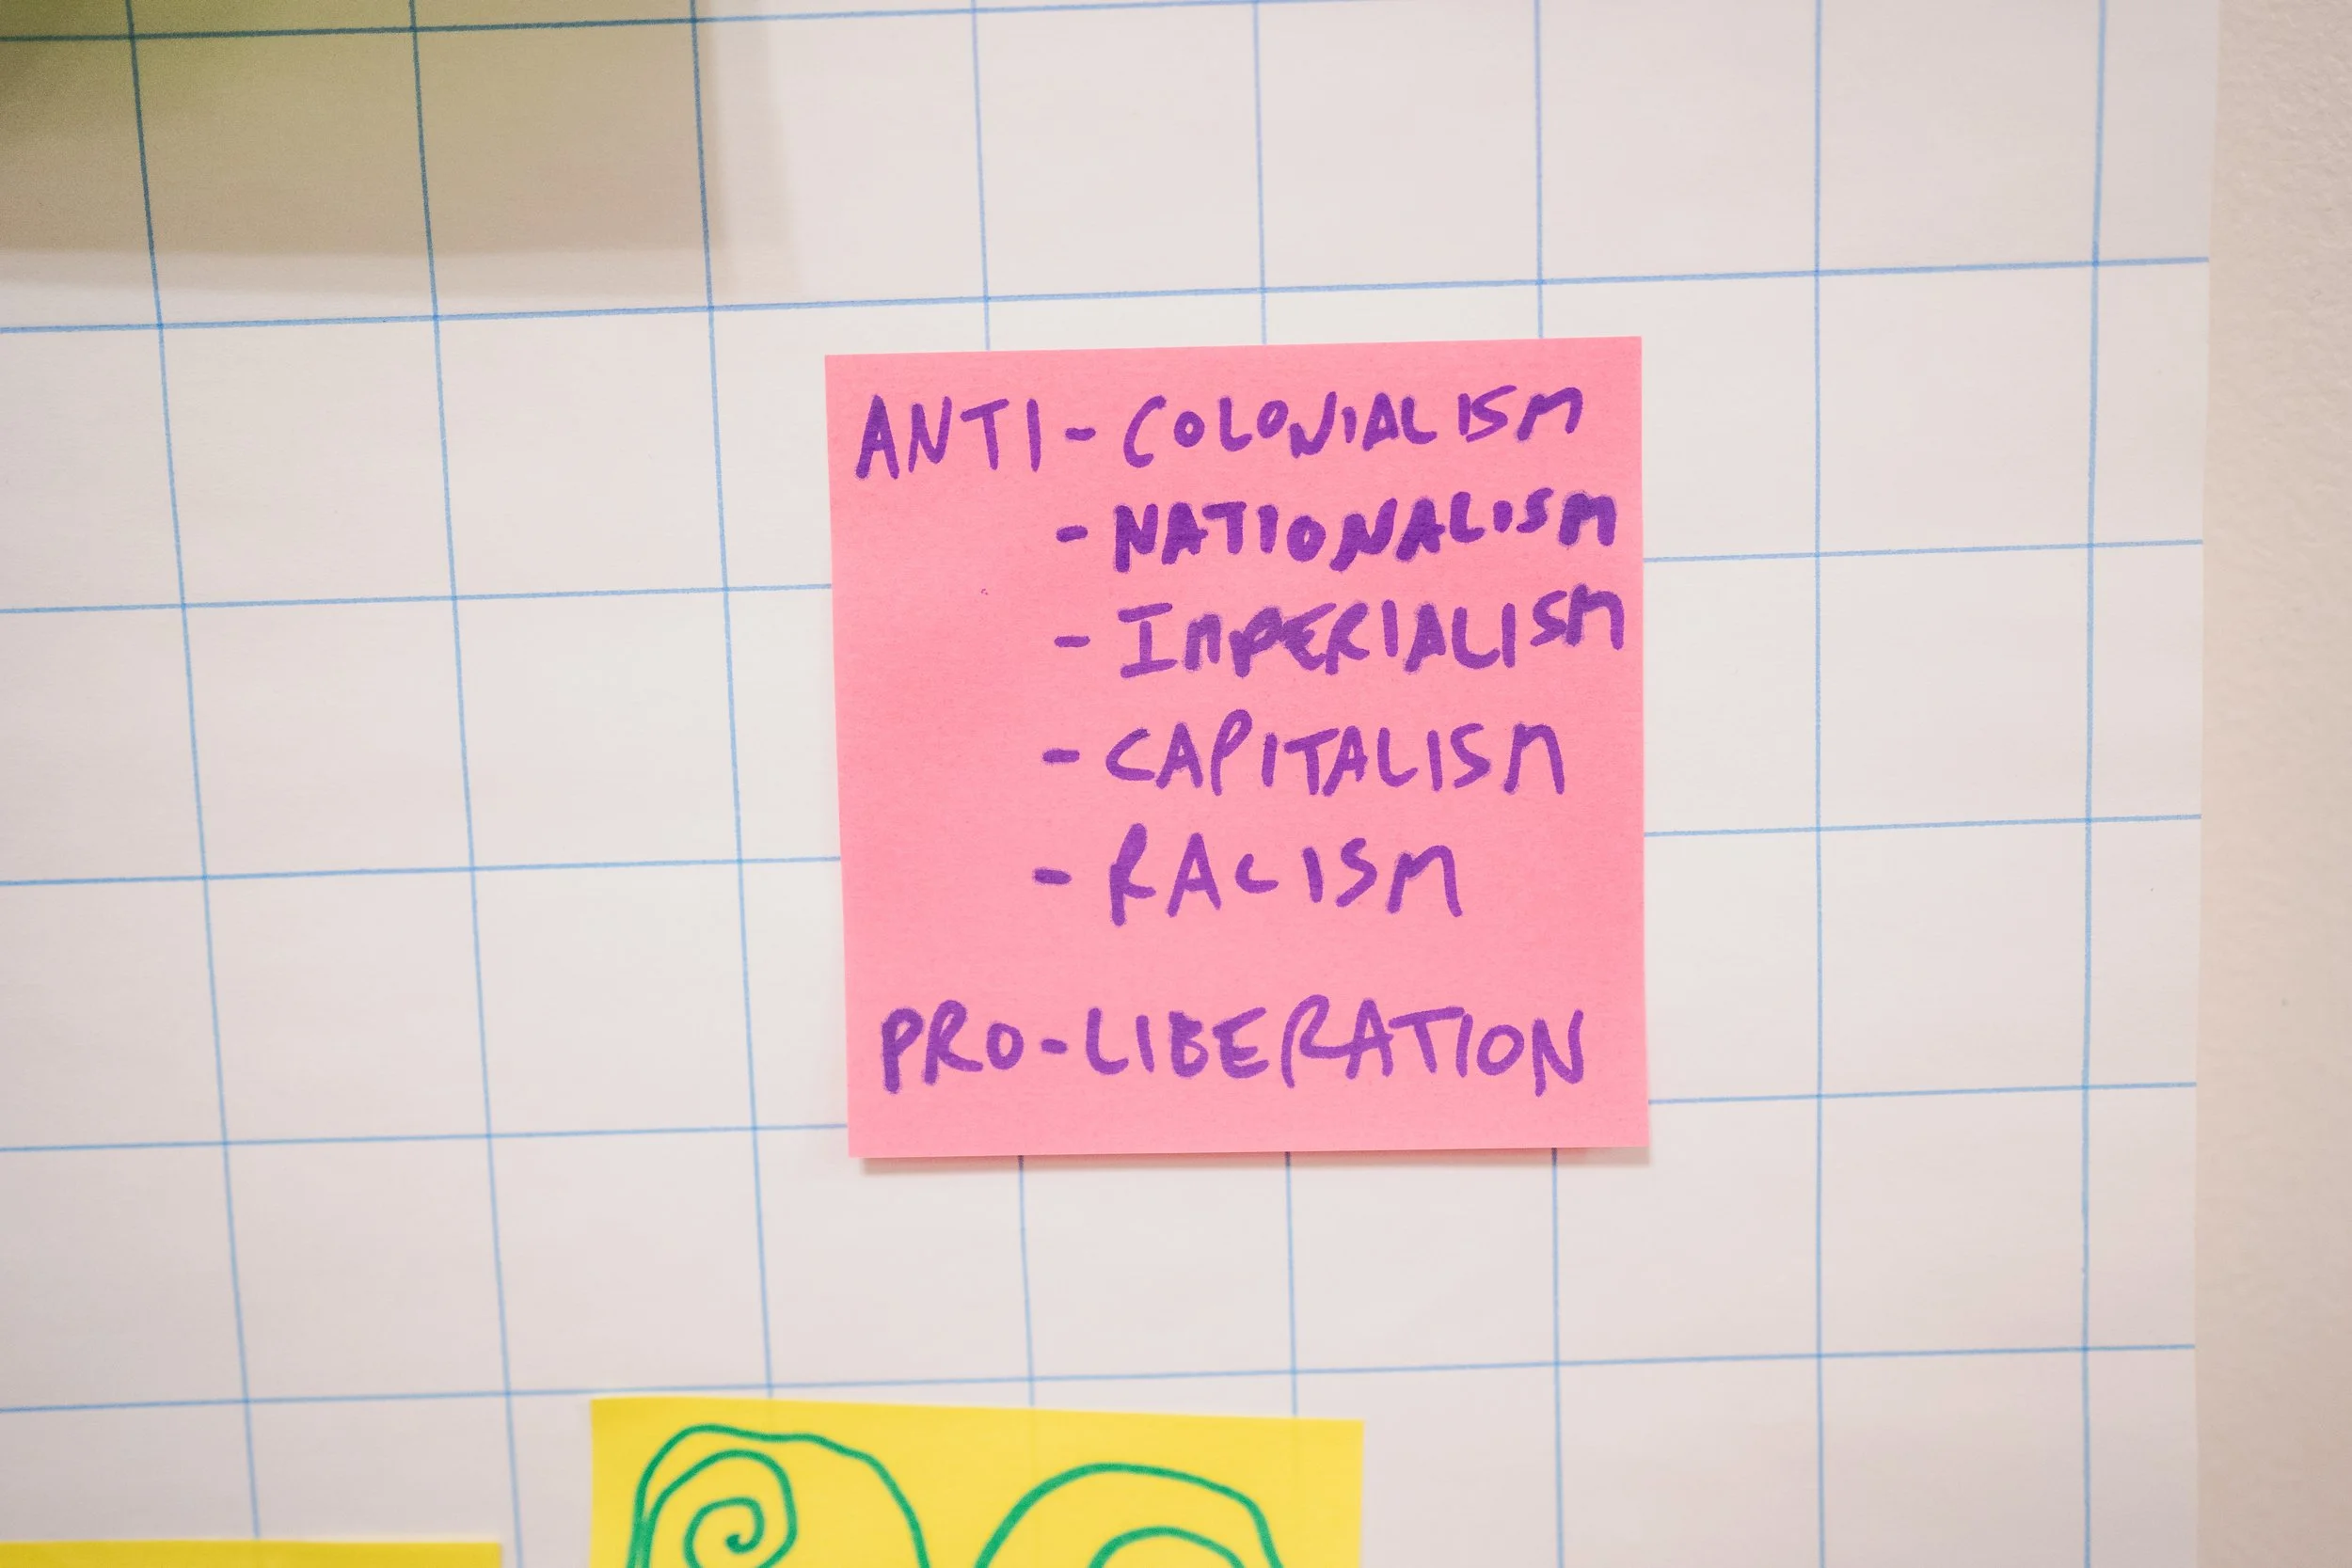 ANTI-COLONIALISM
-NATIONALISM
-IMPERIALISM
-CAPITALISM
-RACISM
PRO-LIBERATION